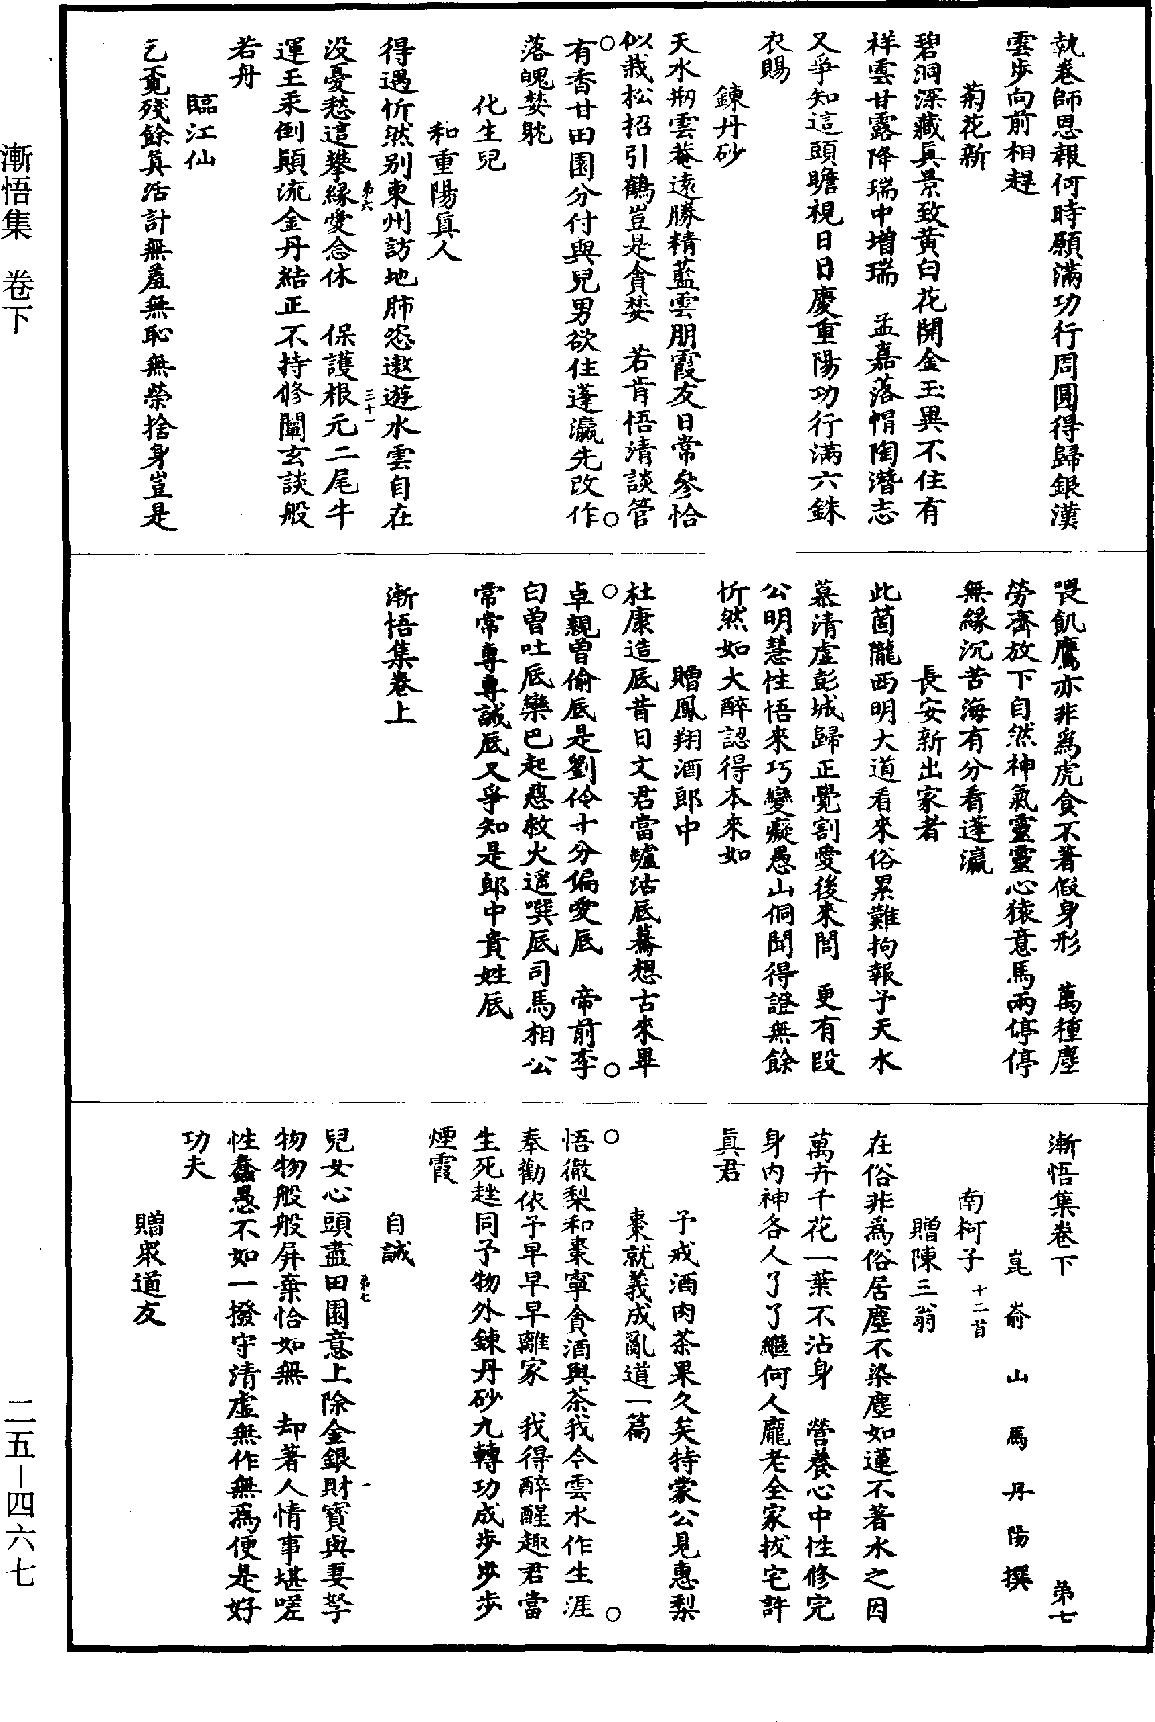 漸悟集　卷下
執卷師恩報何時願滿功行周圓得歸銀漢
雲步向前相趕
菊花新
碧洞深藏眞景致黃白花開金玉異不住有
祥雲甘露降瑞中增瑞　孟嘉落帽陶潛志
又爭知這頭瞻視日日慶重陽功行滿六銖
衣賜
鍊丹砂
天水剏雲菴遠勝精藍雲朋霞友日常參恰
似栽松招引鶴豈是貪婪　若肯悟清談管
有香甘田園分付與兒男欲住蓬瀛先改作
落魄婪耽
化生兒
和重陽眞人
得遇忻然别東州訪地肺恣遨遊水雲自在
没憂愁這攀緣愛念休　保護根元二尾牛
第六
三十一
運王乘倒顚流金丹結正不持修闡玄談般
若舟
臨江仙
乞覓殘餘箕活計無羞無恥無榮捨身豈是
喂飢鷹亦非爲虎食不著假身形　萬種塵
勞齊放下自然神氣靈靈心猿意馬兩停停
無緣沉苦海有分看蓬瀛
長安新出家者
此箇隴西明大道看來俗累難拘報予天水
慕清虛彭城歸正覺割愛後來閭　更有段
公明慧性悟來巧變癡愚山侗聞得證無餘
忻然如大醉認得本來如
贈鳳翔酒郎中
杜康造底昔日文君當罏沽底驀想古來畢
卓親曾偷底是劉伶十分偏愛底　帝前李
白曾吐底欒巴起慈救火遥噀底司馬相公
常常專專誠底又爭知是郎中貴姓底
漸悟集卷上
漸悟集卷下　第七
崑崳山馬丹陽撰
南柯子　十二首
贈陳三翁
在俗非爲俗居塵不染塵如蓮不著水之因
萬卉千花一葉不沾身　營養心中性修完
身内神各人了了繼何人龐老全家拔宅許
眞君
予戒酒肉茶果久矣特蒙公見惠梨
棗就義成亂道一篇
悟徹梨和棗寧貪酒與茶我今雲水作生涯
奉勸依予早早早離家　我得醉醒趣君當
生死趓同予物外鍊丹砂九轉功成步步步
煙霞
自誡
兒女心頭盡田園意上除金銀財寶與妻孥
第七
一
物物般般屏棄恰如無　却著人情事堪嗟
性蠢愚不如一撥守清虛無作無爲便是好
功夫
贈衆道友
二五－四六七